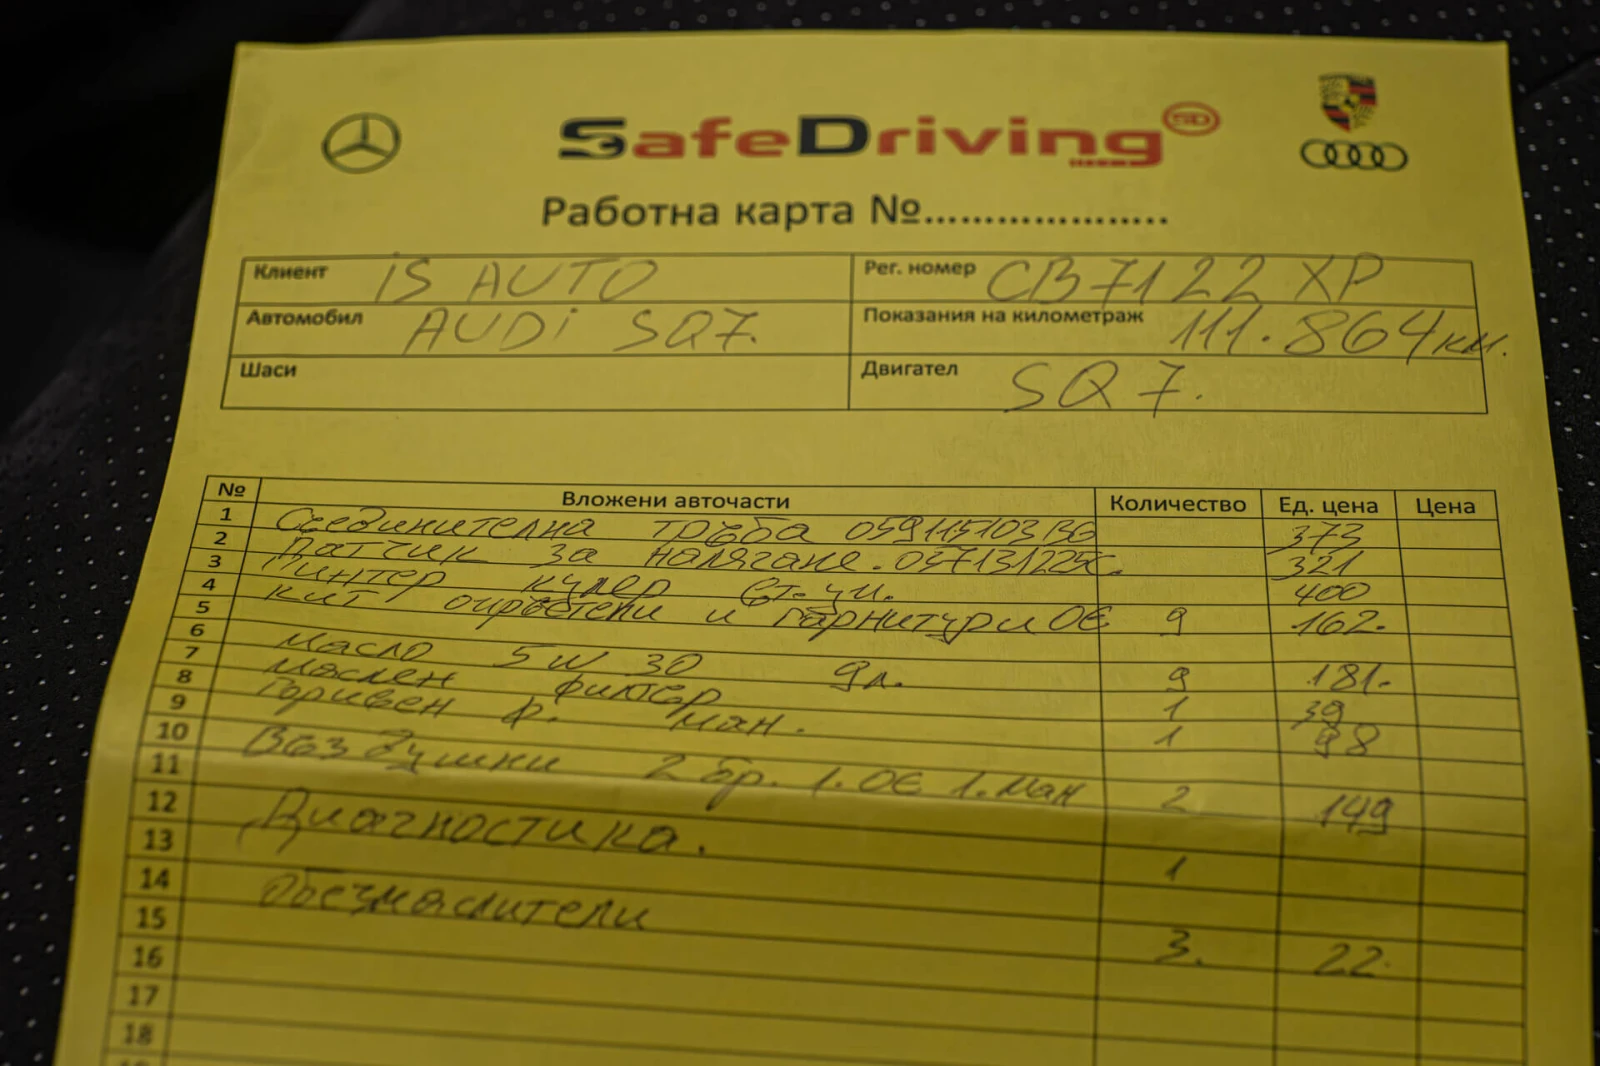 SafeDriving SD
Работна карта №....................
Клиент iS AUTO Рег. номер CB7122XP
Автомобил AUDi SQ7. Показания на километраж 111.864км.
Шаси Двигател SQ7.
№ Вложени авточасти Количество Ед. цена Цена
1 Съединителна тръба 059115103BG 373
2 Датчик за налягане. 321
3 кулер 400
4 кит и гарнитури OE 9 162.
5
6 масло 5W 30 9л. 9 181.
7 маслен филтер 1 39
8 Горивен ф. ман. 1 98
9
10 Въздушни 2 бр. 1.OE 1.ман 2 149
11
12 Диагностика. 1
13
14 Обезмаслители 3. 22.
15
16
17
18